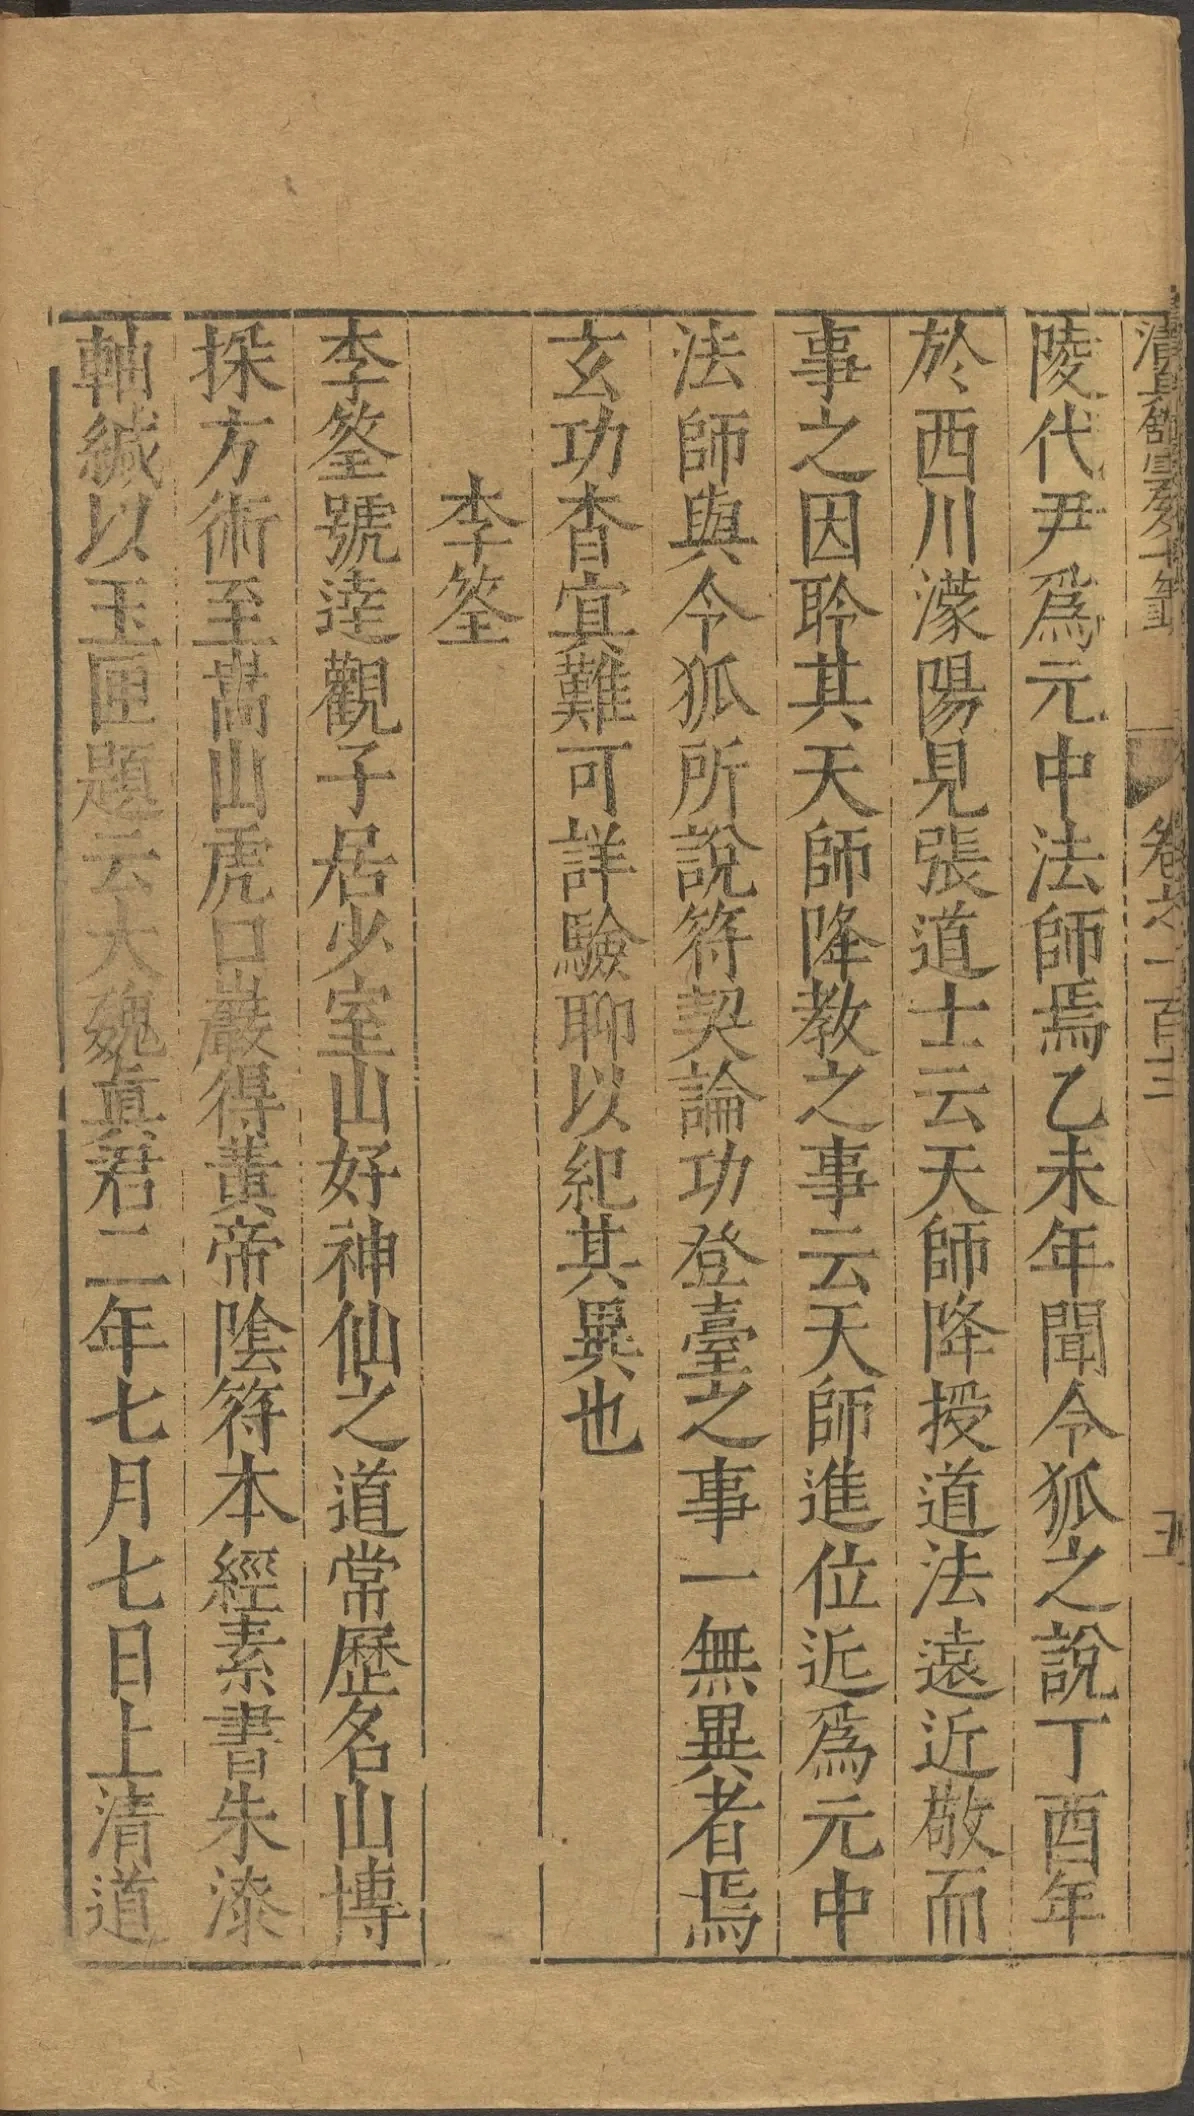 清真館雲笈七籤
卷之一百三
五
陵代尹爲元中法師焉乙未年聞令狐之說丁酉年
於西川濛陽見張道士云天師降授道法遠近敬而
事之因聆其天師降教之事云天師進位近爲元中
法師與令狐所說符契論功登臺之事一無異者焉
玄功杳㝠難可詳驗聊以紀其異也
李筌
李筌號逹觀子居少室山好神仙之道常歷名山博
採方術至嵩山虎口巖得黃帝陰符本經素書朱漆
軸緘以玉匣題云大魏真君二年七月七日上清道